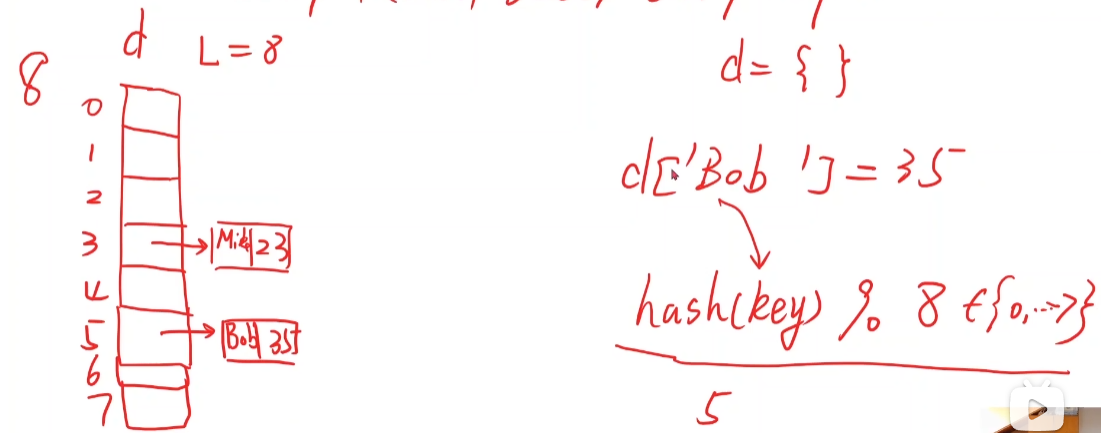 d L = 8
8
0
1
2
3 Mik 23
4
5 Bob 35
6
7
d = { }
d['Bob '] = 35
hash(key) % 8 ∈ {0,...7}
5